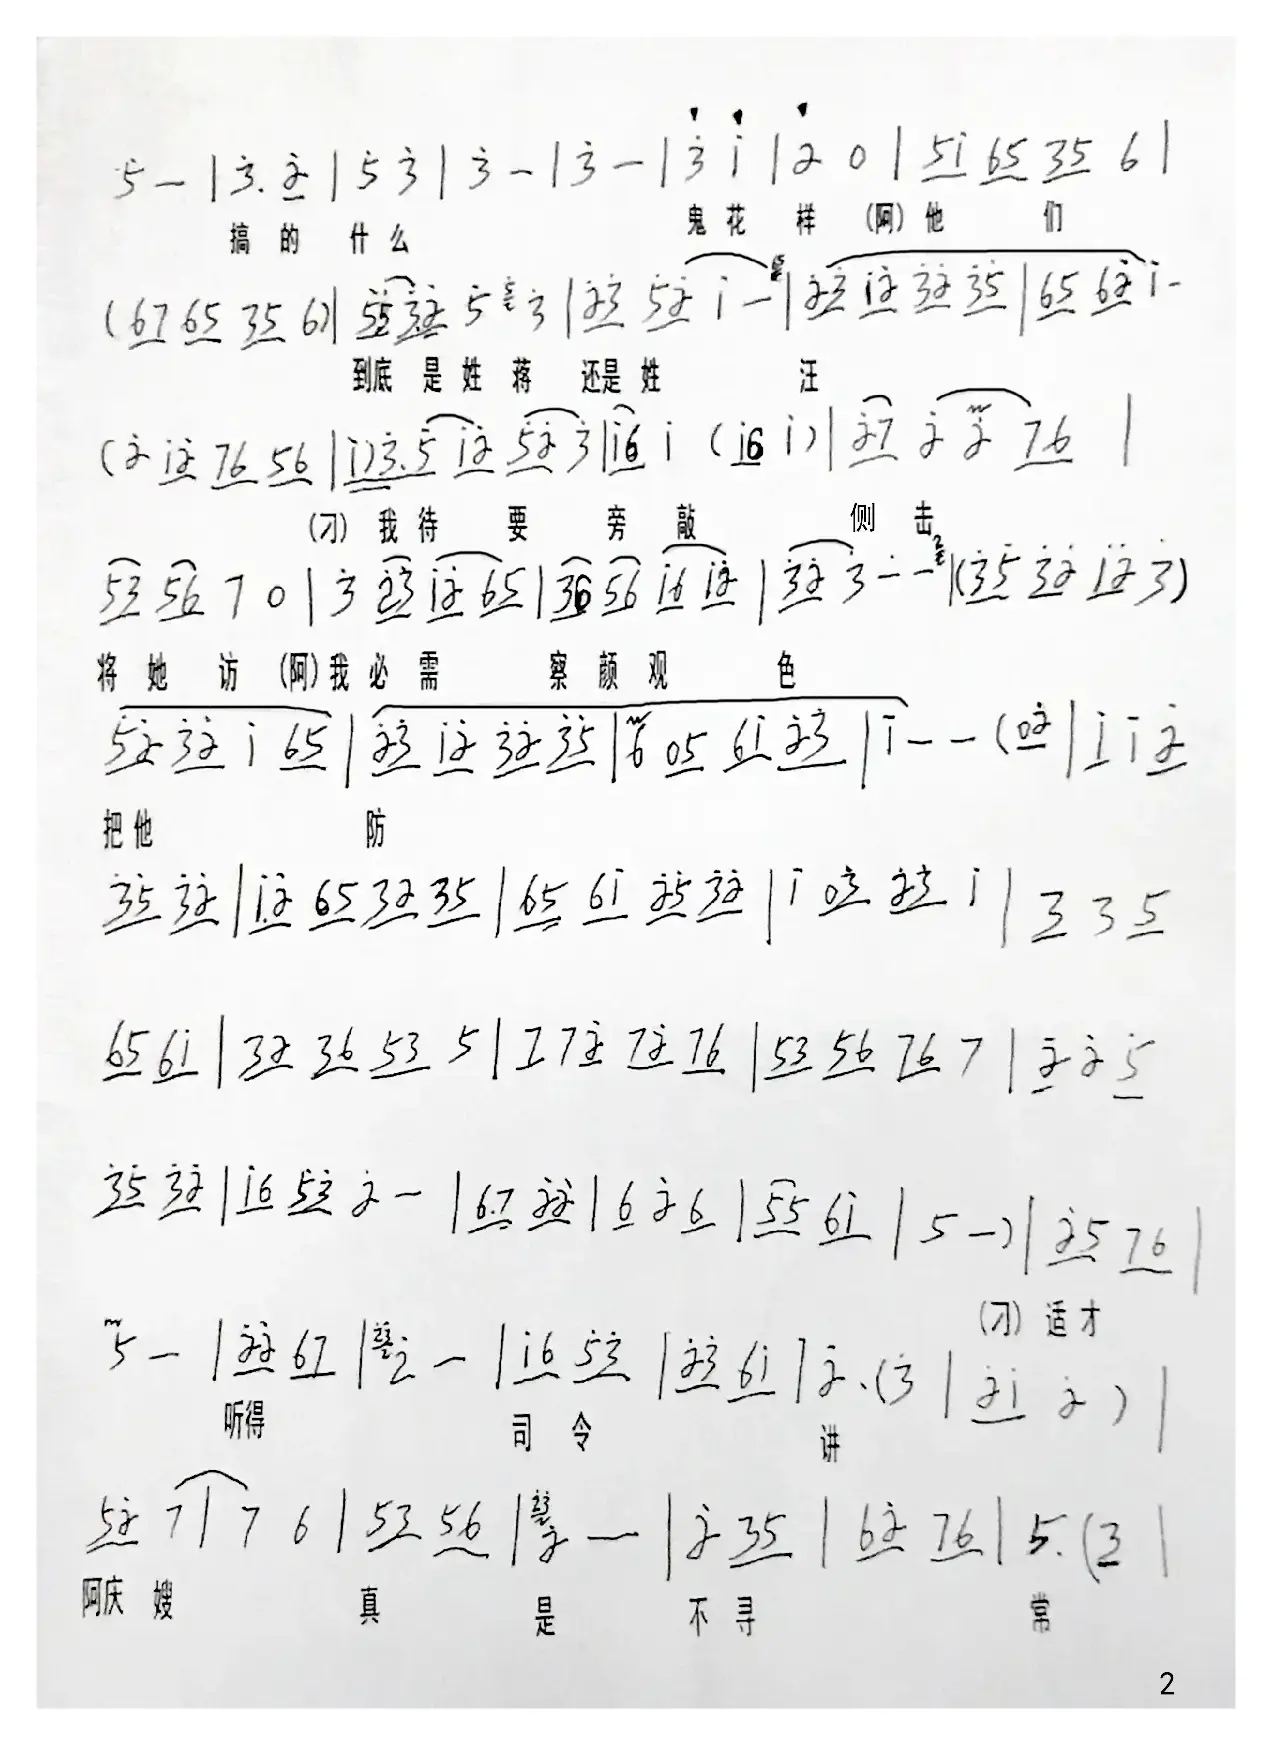 5 — | 3̇. 2̇ | 5̇ 3̇ | 3̇ — | 3̇ — | 3̇ 1̇ | 2̇ 0 | 51̇ 65 35 6 |
搞的 什么 鬼花样 (阿)他 们
(67 65 35 6) | 5̇5̇ 3̇.2̇ 5̇ 3̇ | 2̇3̇ 5̇2̇ 1̇ — | 2̇3̇ 1̇2̇ 3̇2̇ 3̇5̇ | 65 62̇ 1̇ -
到底 是 姓 蒋 还是 姓 汪
(2̇ 1̇2̇ 76 56 | 1̇) 3̇.5̇ 1̇2̇ 5̇2̇ 3̇ | 1̇6 1̇ (1̇6 1̇) | 2̇7 2̇ 2̇ 76 |
(刁) 我 待 要 旁 敲 侧 击
53 56 7 0 | 3̇ 2̇3̇ 1̇2̇ 65 | 36 56 1̇6 1̇2̇ | 3̇2̇ 3̇ - — | (3̇5̇ 3̇2̇ 1̇2̇ 3̇)
将 她 访 (阿)我 必 需 察 颜 观 色
5̇2̇ 3̇2̇ 1̇ 65 | 2̇3̇ 1̇2̇ 3̇2̇ 3̇5̇ | 6 05 61̇ 2̇3̇ | 1̇ — — (02̇ | 1̇ 1̇ 2̇
把他 防
3̇5̇ 3̇2̇ | 1̇.2̇ 65 32 35 | 65 61̇ 2̇5̇ 3̇2̇ | 1̇ 03̇ 2̇3̇ 1̇ | 3 3 5
65 61̇ | 32 36 53 5 | 7 72̇ 72̇ 76 | 53 56 76 7 | 2̇ 2̇ 5̇
3̇5̇ 3̇2̇ | 1̇6 5̇3̇ 2̇ — | 6.7 2̇2̇ | 6 2̇ 6 | 55 61̇ | 5 —) | 2̇5 76 |
(刁) 适才
5 — | 2̇2̇ 67 | 2̇ — | 1̇6 5̇3̇ | 2̇3̇ 61̇ | 2̇. (3̇ | 2̇1̇ 2̇ ) |
听得 司 令 讲
5̇2̇ 7 | 7 6 | 53 56 | 2̇ — | 2̇ 35 | 62̇ 76 | 5. (3 |
阿庆 嫂 真 是 不 寻 常
2